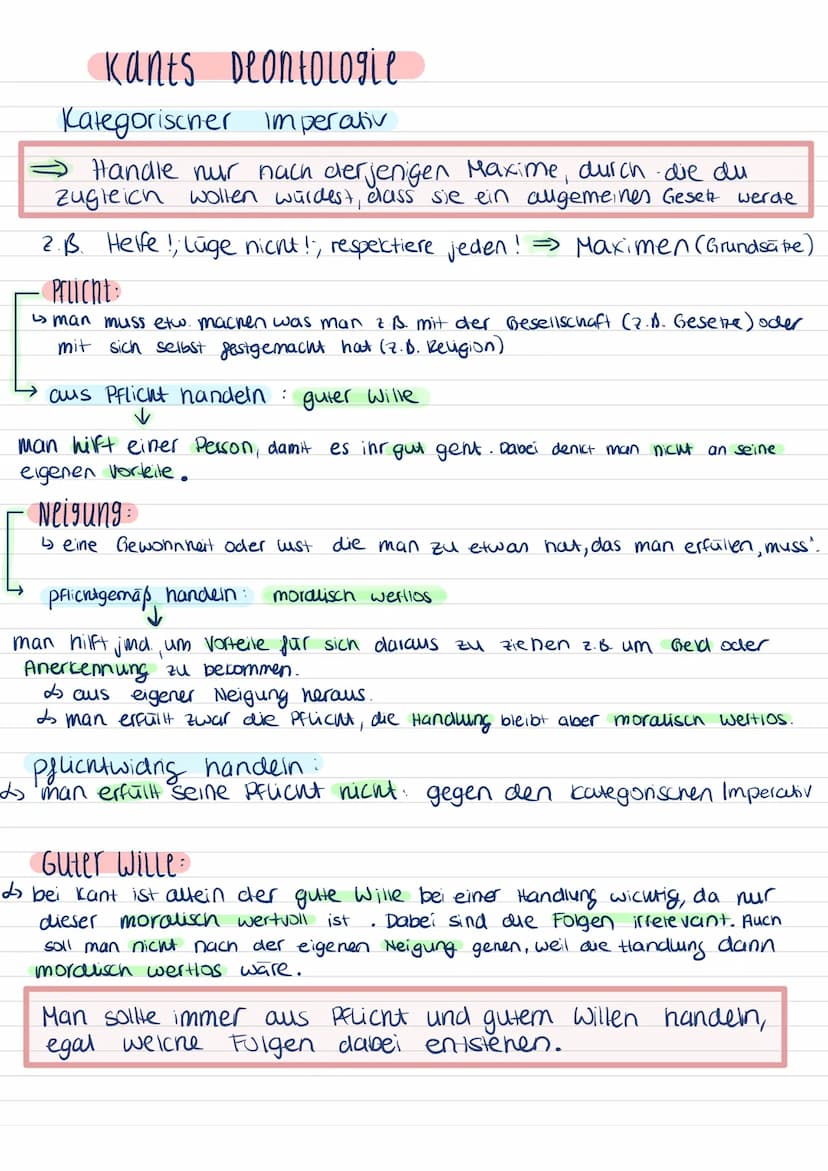 Kants Deontologie
Kategorischer Imperativ
⇒ Handle nur nach derjenigen Maxime, durch die du
zugleich wollen würdest, dass sie ein allgemeines Gesetz werde
z.B. Helfe!; Lüge nicht!; respektiere jeden! ⇒ Maximen (Grundsätze)
Pflicht:
↳ man muss etw. machen was man z.B. mit der Gesellschaft (z.B. Gesetze) oder
mit sich selbst festgemacht hat (z.B. Religion)
→ aus Pflicht handeln : guter Wille
↓
man hilft einer Person, damit es ihr gut geht. Dabei denkt man nicht an seine
eigenen Vorteile.
Neigung:
↳ eine Gewohnheit oder Lust die man zu etwas hat, das man erfüllen „muss".
→ pflichtgemäß handeln: moralisch wertlos
↓
man hilft jmd. um Vorteile für sich daraus zu ziehen z.B. um Geld oder
Anerkennung zu bekommen.
↳ aus eigener Neigung heraus.
↳ man erfüllt zwar die Pflicht, die Handlung bleibt aber moralisch wertlos.
pflichtwidrig handeln:
↳ man erfüllt seine Pflicht nicht: gegen den kategorischen Imperativ
Guter Wille:
↳ bei Kant ist allein der gute Wille bei einer Handlung wichtig, da nur
dieser moralisch wertvoll ist. Dabei sind die Folgen irrelevant. Auch
soll man nicht nach der eigenen Neigung gehen, weil die Handlung dann
moralisch wertlos wäre.
Man sollte immer aus Pflicht und gutem Willen handeln,
egal welche Folgen dabei entstehen.